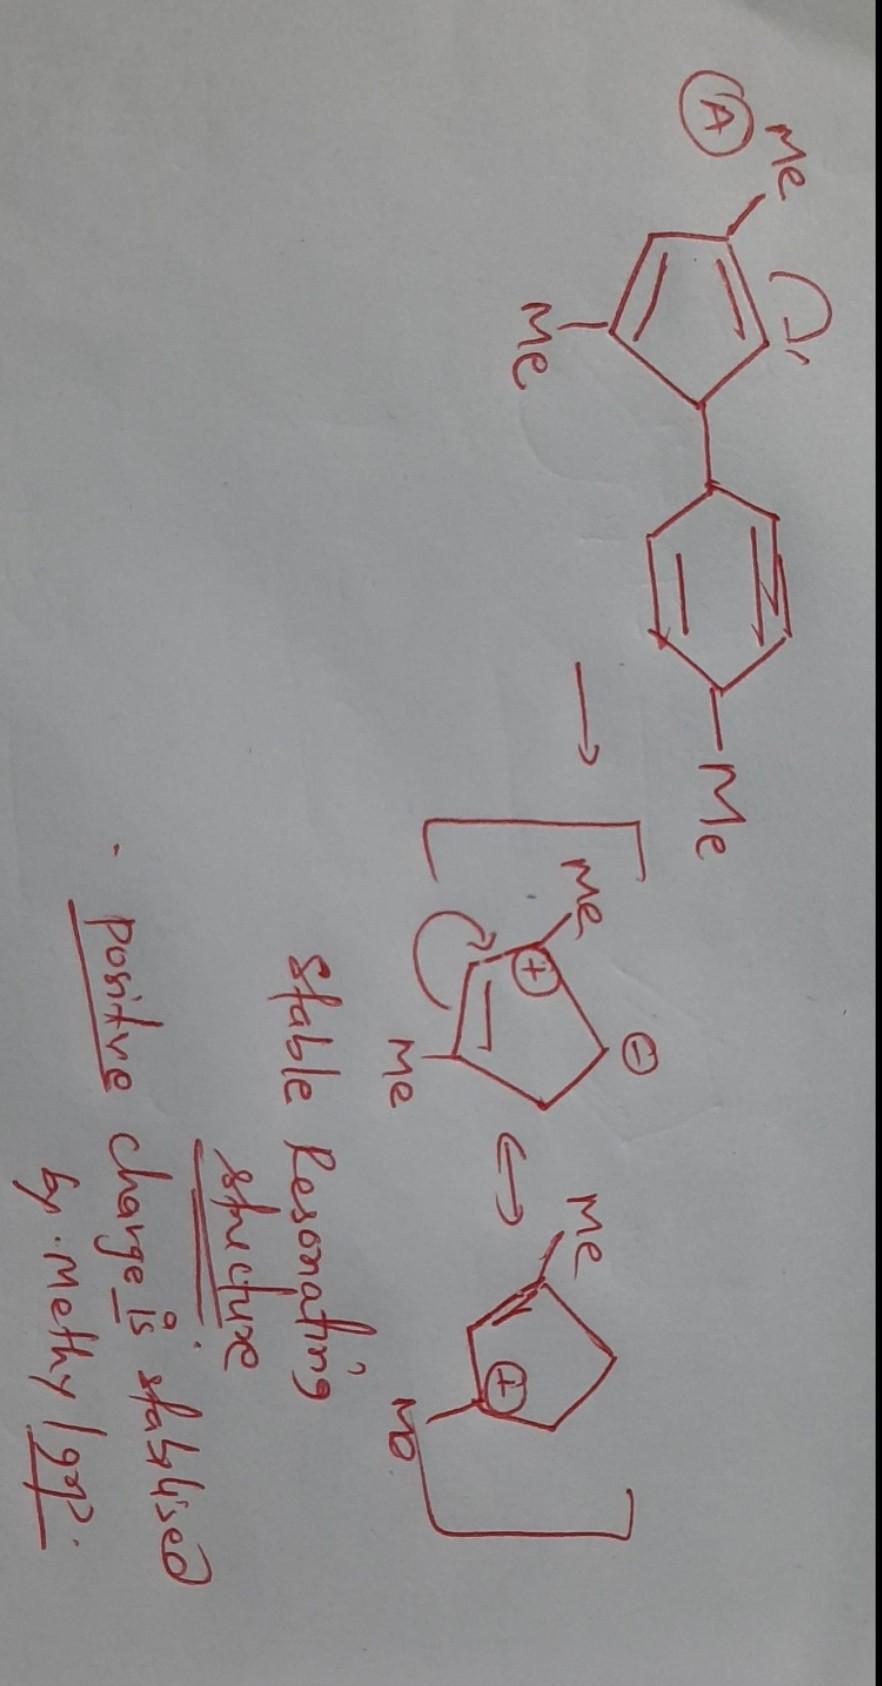 A
Me
Me
Me
Me
⊕
⊖
Me
Me
⊕
Me
Stable Resonating
structure
positive charge is stablised
by methyl grp.